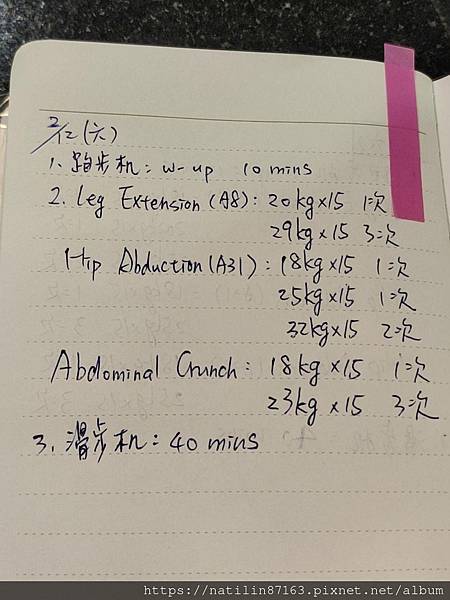 2/12 (六)
1. 跑步机: w-up 10 mins
2. Leg Extension (A8): 20kg×15 1次
29kg×15 3次
Hip Abduction (A31): 18kg×15 1次
25kg×15 1次
32kg×15 2次
Abdominal Crunch: 18kg×15 1次
23kg×15 3次
3. 滑步机: 40 mins
https://natilin87163.pixnet.net/album